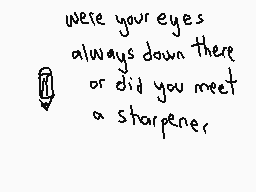 were your eyes
always down there
or did you meet
a sharpener